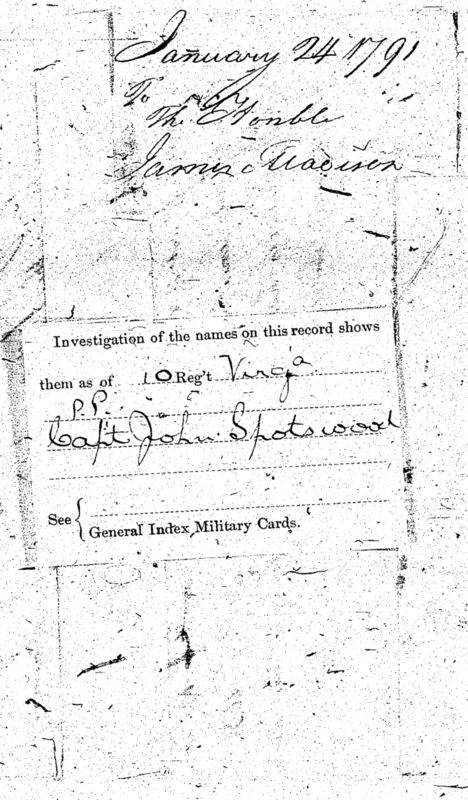 January 24 1791
To
The Honble
James Madison
Investigation of the names on this record shows
them as of 10 Reg't Virg'a
P.P.
Capt John Spotswood
See { General Index Military Cards.